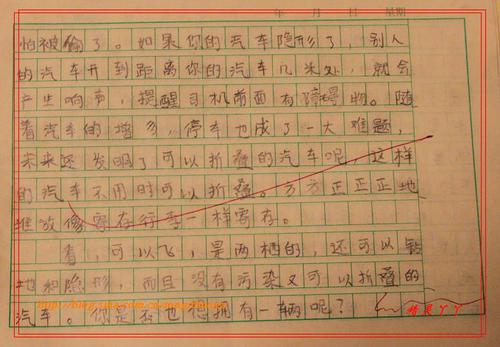 年 月 日 星期
怕被偷了。如果你的汽车隐形了，别人
的汽车开到距离你的汽车几米处，就会
产生响声，提醒司机前面有障碍物。随
着汽车的增多，停车也成了一大难题，
未来还发明了可以折叠的汽车呢，这样
的汽车不用时可以折叠。方方正正正地
堆放像寄存行李一样寄存。
看，可以飞，是两栖的，还可以钻
地和隐形，而且没有污染又可以折叠的
汽车。你是否也想拥有一辆呢？